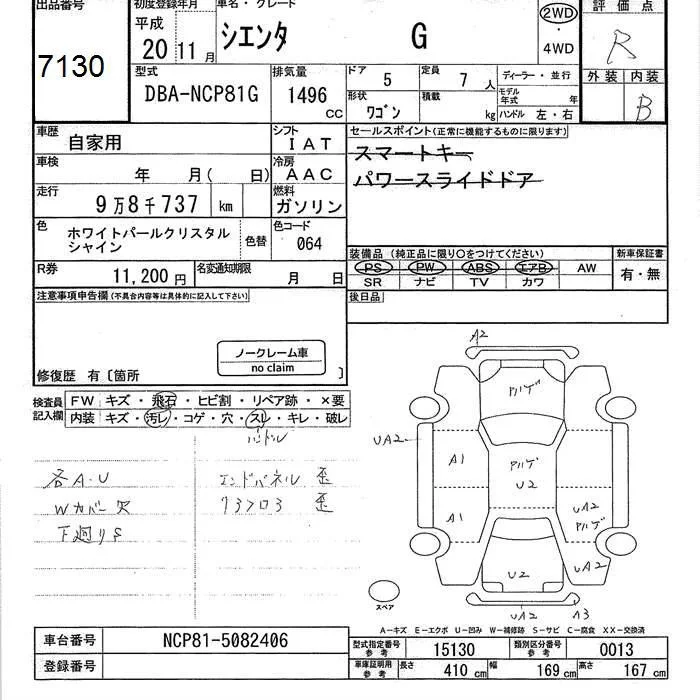 出品番号
7130
初度登録年月
平成
20 11 月
車名・グレード
シエンタ G
2WD
・
4WD
評価点
R
外装 内装
B
型式
DBA-NCP81G
排気量
1496 CC
ドア 5 定員 7 人
形状 ワゴン 積載 kg
ディーラー・並行
モデル年式 年
ハンドル 左・右
車歴 自家用
シフト IAT
車検 年 月( 日)
冷房 AAC
走行 9万8千737 km
燃料 ガソリン
色 ホワイトパールクリスタル
シャイン
色替
色コード
064
R券 11,200 円
名変通知期限 月 日
セールスポイント(正常に機能するものに限ります)
スマートキー
パワースライドドア
装備品 (純正品に限り○をつけてください)
新車保証書
PS PW ABS エアB AW
SR ナビ TV カワ
有・無
後日品
注意事項申告欄(不具合内容等は具体的に記入して下さい)
ノークレーム車
no claim
修復歴 有〔箇所 〕
検査員
記入欄
FW キズ・飛石・ヒビ割・リペア跡・×要
内装 キズ・汚レ・コゲ・穴・スレ・キレ・破レ
ハンドル
各A・U
エンドパネル 歪
Wカバー欠
下廻りS
A2
アルゲ
UA2
A1
アルゲ
U2
A1
UA2
アルゲ
UA2
U2
UA2
A3
スペア
A-キズ E-エクボ U-凹み W-補修跡 S-サビ C-腐食 XX-交換済
車台番号 NCP81-5082406
登録番号
型式指定番号
参考
15130
類別区分番号
参考
0013
車庫証明用
参考
長さ 410 cm 幅 169 cm 高さ 167 cm